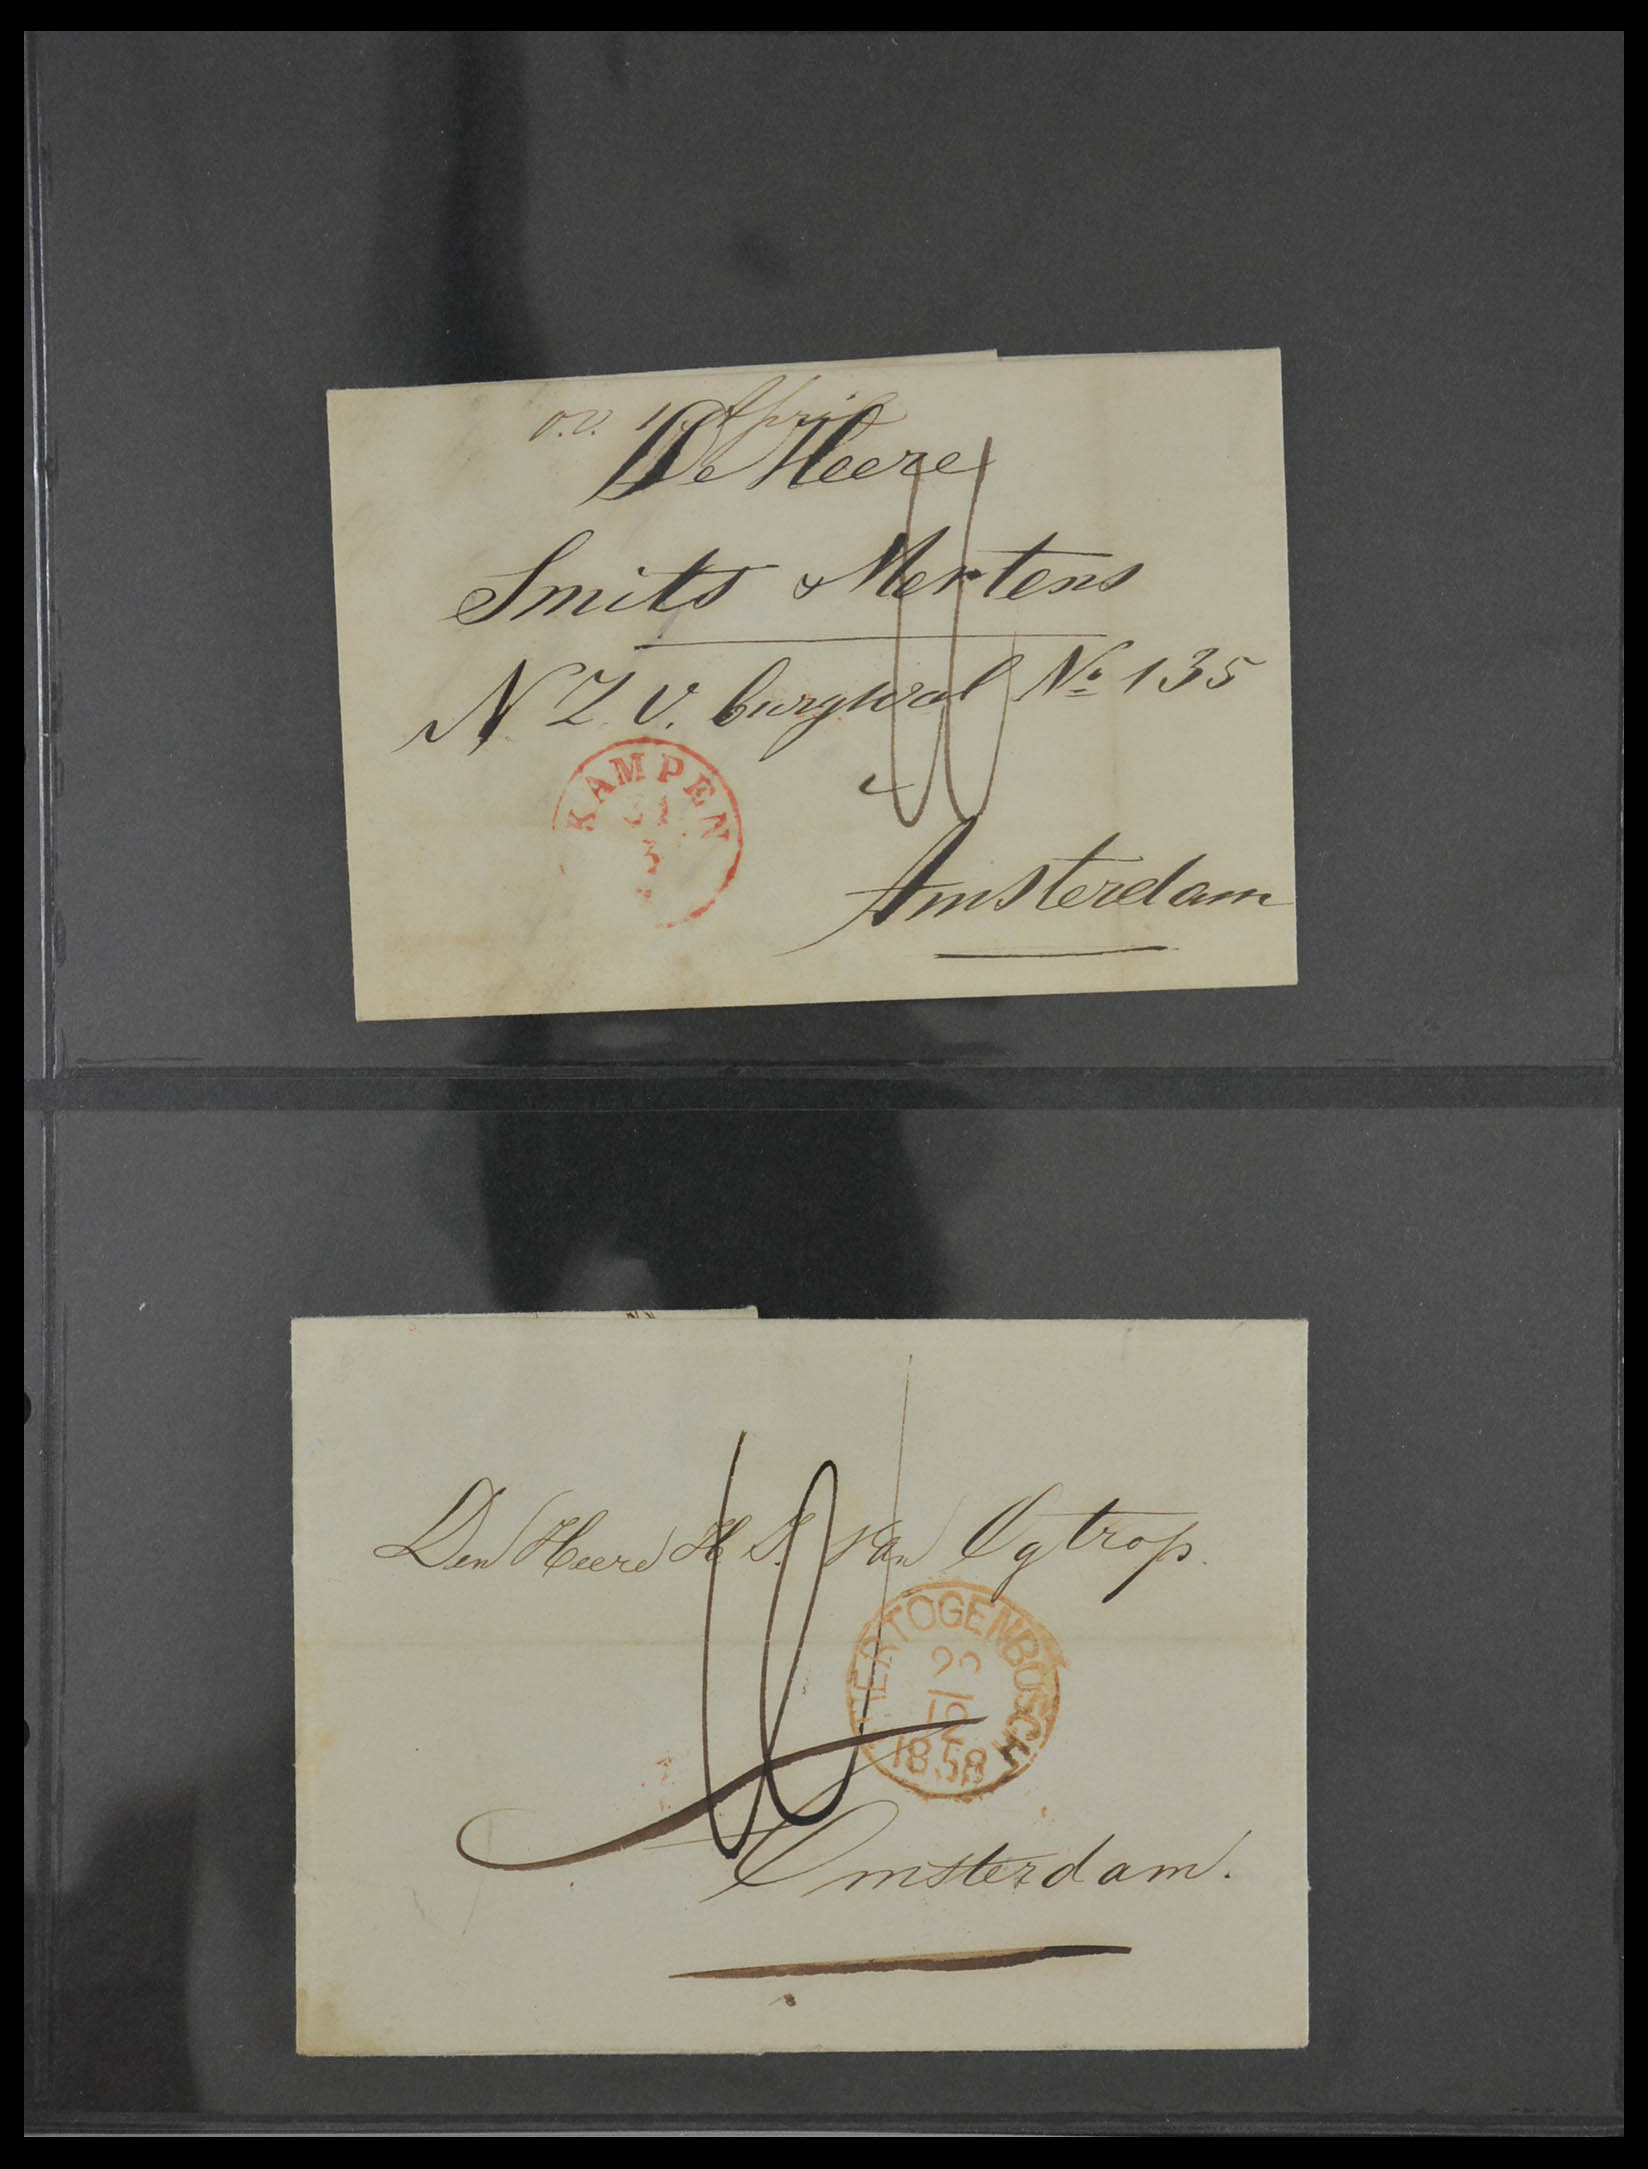 o.v. 1 April
De Heere
Smits & Mertens
N Z. V. burgwal No. 135
KAMPEN
31
3
Amsterdam
Den Heere H. J. Van Ogtrop.
HERTOGENBOSCH
12
1858
Amsterdam.